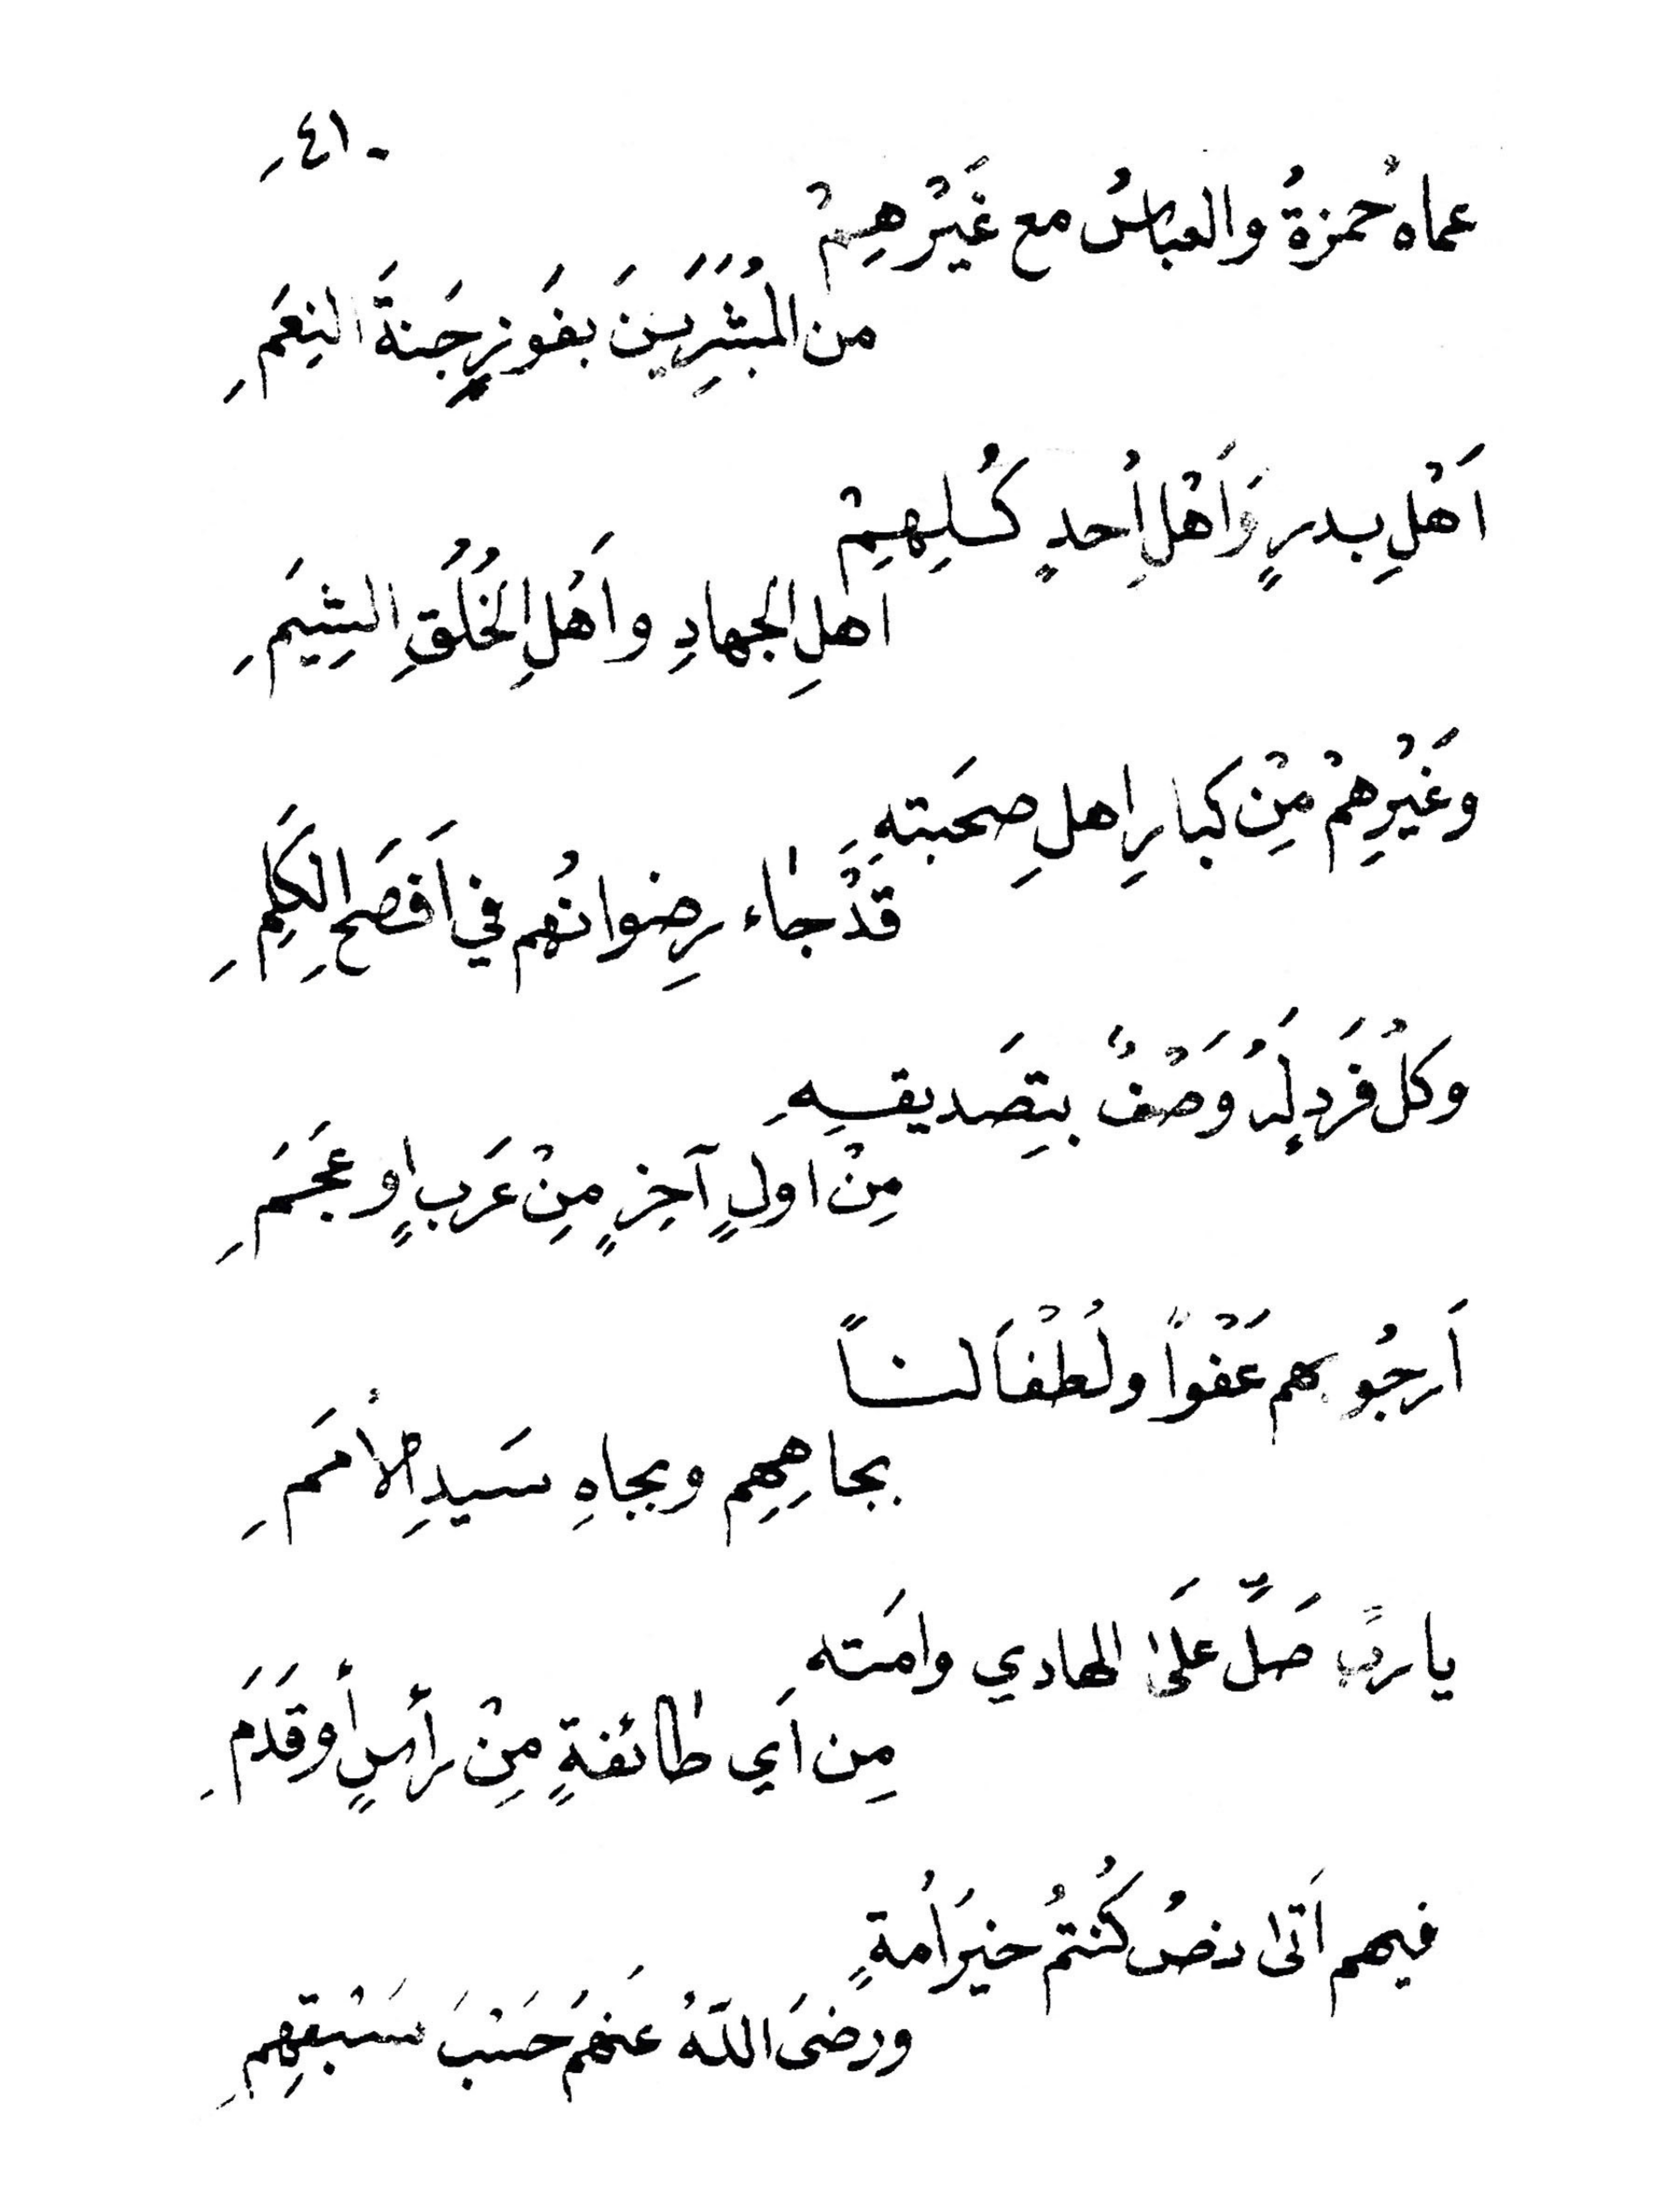 -٤١-
عماهُ حمزةُ والعباسُ مع غَيْرهِمْ
من المُبَشِرَيينَ بفَوزٍ جَنةَ النِعَمِ
اَهْلِ بدرٍ وَاَهْلِ اُحدٍ كُلِهِمِْ
اَهلِ الجهادِ واَهَلِ الخُلُقِ الشِيَمِ
وَغيْرِهِمْ مِنْ كبارِ اهلِ صِحَبتهِ
قَدْ جاء رِضوانُهم في اَفصَحِ الكَلِمِ
وَكلُ فَردٍ لَهُ وَصْفٌ بتِصَديقهِ
مِنْ اولٍ آخِرٍ مِنْ عَربٍ اوعَجَمِ
اَرجُو بهم عَفْواً ولُطْفاَ لنـاً
بجاهِهِم وبجاهِ سَيدِ الأُمَمِ
ياربِّ صَلِّ علَى الهادي وامَته
مِن اَي طائفةٍ مِنْ رأسٍ أوقَدَمِ
فيهم اَتى نصُ كُنتمُ خيرَ اُمةٍ
ورضىَ اللهُ عنهُم حَسْبَ سَبْقِهِم